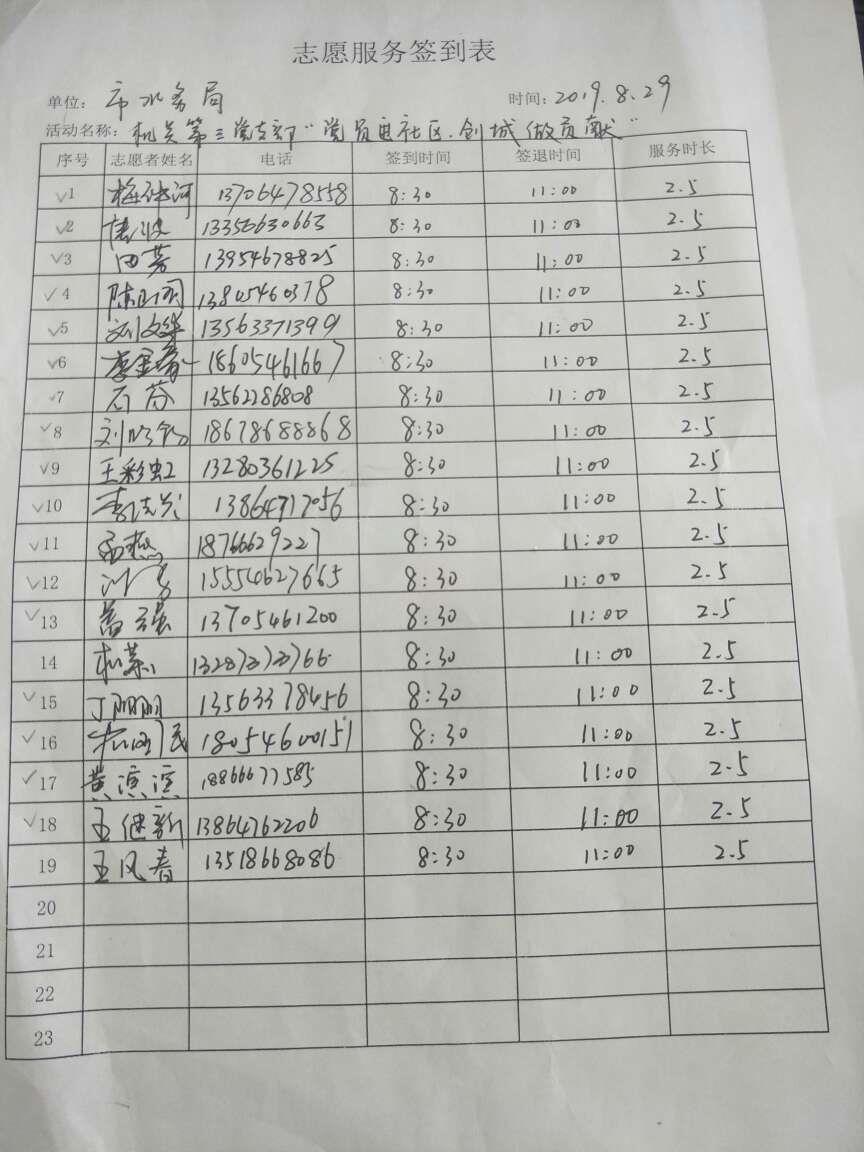 志愿服务签到表
单位: 市水务局 时间: 2019.8.29
活动名称: 机关第三党支部"党员进社区.创城做贡献"
序号 志愿者姓名 电话 签到时间 签退时间 服务时长
√1 13706478558 8:30 11:00 2.5
√2 13350630663 8:30 11:00 2.5
√3 田芳 13954678825 8:30 11:00 2.5
√4 13805460378 8:30 11:00 2.5
√5 刘文华 13563371399 8:30 11:00 2.5
√6 18605461667 8:30 11:00 2.5
√7 石芬 13562286808 8:30 11:00 2.5
√8 18678688868 8:30 11:00 2.5
√9 王彩虹 13280361225 8:30 11:00 2.5
√10 13864717056 8:30 11:00 2.5
√11 孟燕 18766629227 8:30 11:00 2.5
√12 15554627665 8:30 11:00 2.5
√13 13705461200 8:30 11:00 2.5
14 8:30 11:00 2.5
√15 丁丽丽 13563378456 8:30 11:00 2.5
√16 18054600151 8:30 11:00 2.5
√17 黄滨滨 18866677585 8:30 11:00 2.5
√18 王健新 13864762206 8:30 11:00 2.5
19 王风春 13518668086 8:30 11:00 2.5
20
21
22
23